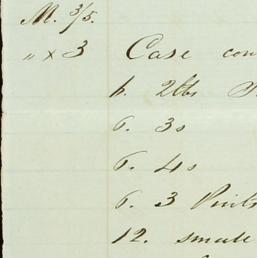 M. 3/5.
" x 3 Case con
6. 2lbs
6. 3s
6. 4s
6. 3 Pints
12. small